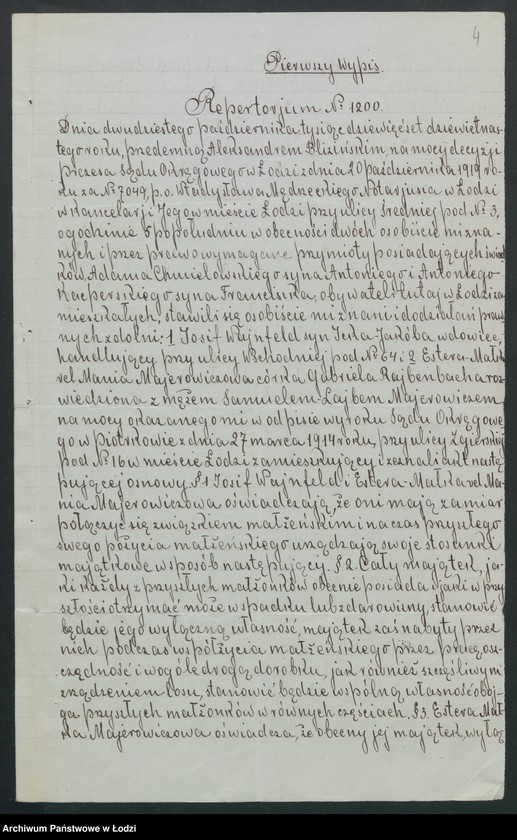 4
Pierwszy Wypis.
Repertorjum № 1200.
Dnia dwudziestego października tysiąc dziewięćset dziewiętnas-
tego roku, przedemną Aleksandrem Blizińskim, na mocy decyzji
prezesa Sądu Okręgowego w Łodzi z dnia 20 października 1919 ro-
ku za № 7049, p.o. Władysława Mędrzeckiego Notarjusza w Łodzi
w kancelarji Jego w mieście Łodzi przy ulicy Średniej pod № 3,
o godzinie 5 popołudniu w obecności dwóch osobiście mi zna-
nych i przez prawo wymagane przymioty posiadających świad-
ków Adama Chmielowskiego syna Antoniego i Antoniego
Kacperskiego syna Franciszka, obywateli tutaj w Łodzi za-
mieszkałych, stawili się osobiście mi znani i do działań praw-
nych zdolni: 1 Josif Wajnfeld syn Icka-Jakóba wdowiec,
handlujący przy ulicy Wschodniej pod № 64 i 2 Estera-Matka
vel Mania Majerowiczowa córka Gabriela Rajbenbacha roz-
wiedziona z mężem Samuelem-Lajbem Majerowiczem
na mocy okazanego mi w odpisie wyroku Sądu Okręgowe-
go w Piotrkowie z dnia 27 marca 1914 roku, przy ulicy Zgierskiej
pod № 16 w mieście Łodzi zamieszkujący i zeznali akt nastę-
pującej osnowy. § 1 Josif Wajnfeld i Estera-Malka vel Ma-
nia Majerowiczowa oświadczają, że oni mają zamiar
połączyć się związkiem małżeńskim i na czas przyszłego
swego pożycia małżeńskiego urządzają swoje stosunki
majątkowe w sposób następujący. § 2. Cały majątek, ja-
ki każdy z przyszłych małżonków obecnie posiada i jaki w przy-
szłości otrzymać może w spadku lub z darowizny, stanowić
będzie jego wyłączną własność, majątek zaś nabyty przez
nich podczas współżycia małżeńskiego przez pracę, osz-
czędność i wogóle drogą dorobku, jak również szczęśliwym
zrządzeniem losu, stanowić będzie wspólną własność oboj-
ga przyszłych małżonków w równych częściach. § 3. Estera Mal-
ka Majerowiczowa oświadcza, że obecny jej majątek, wyłącz
Archiwum Państwowe w Łodzi